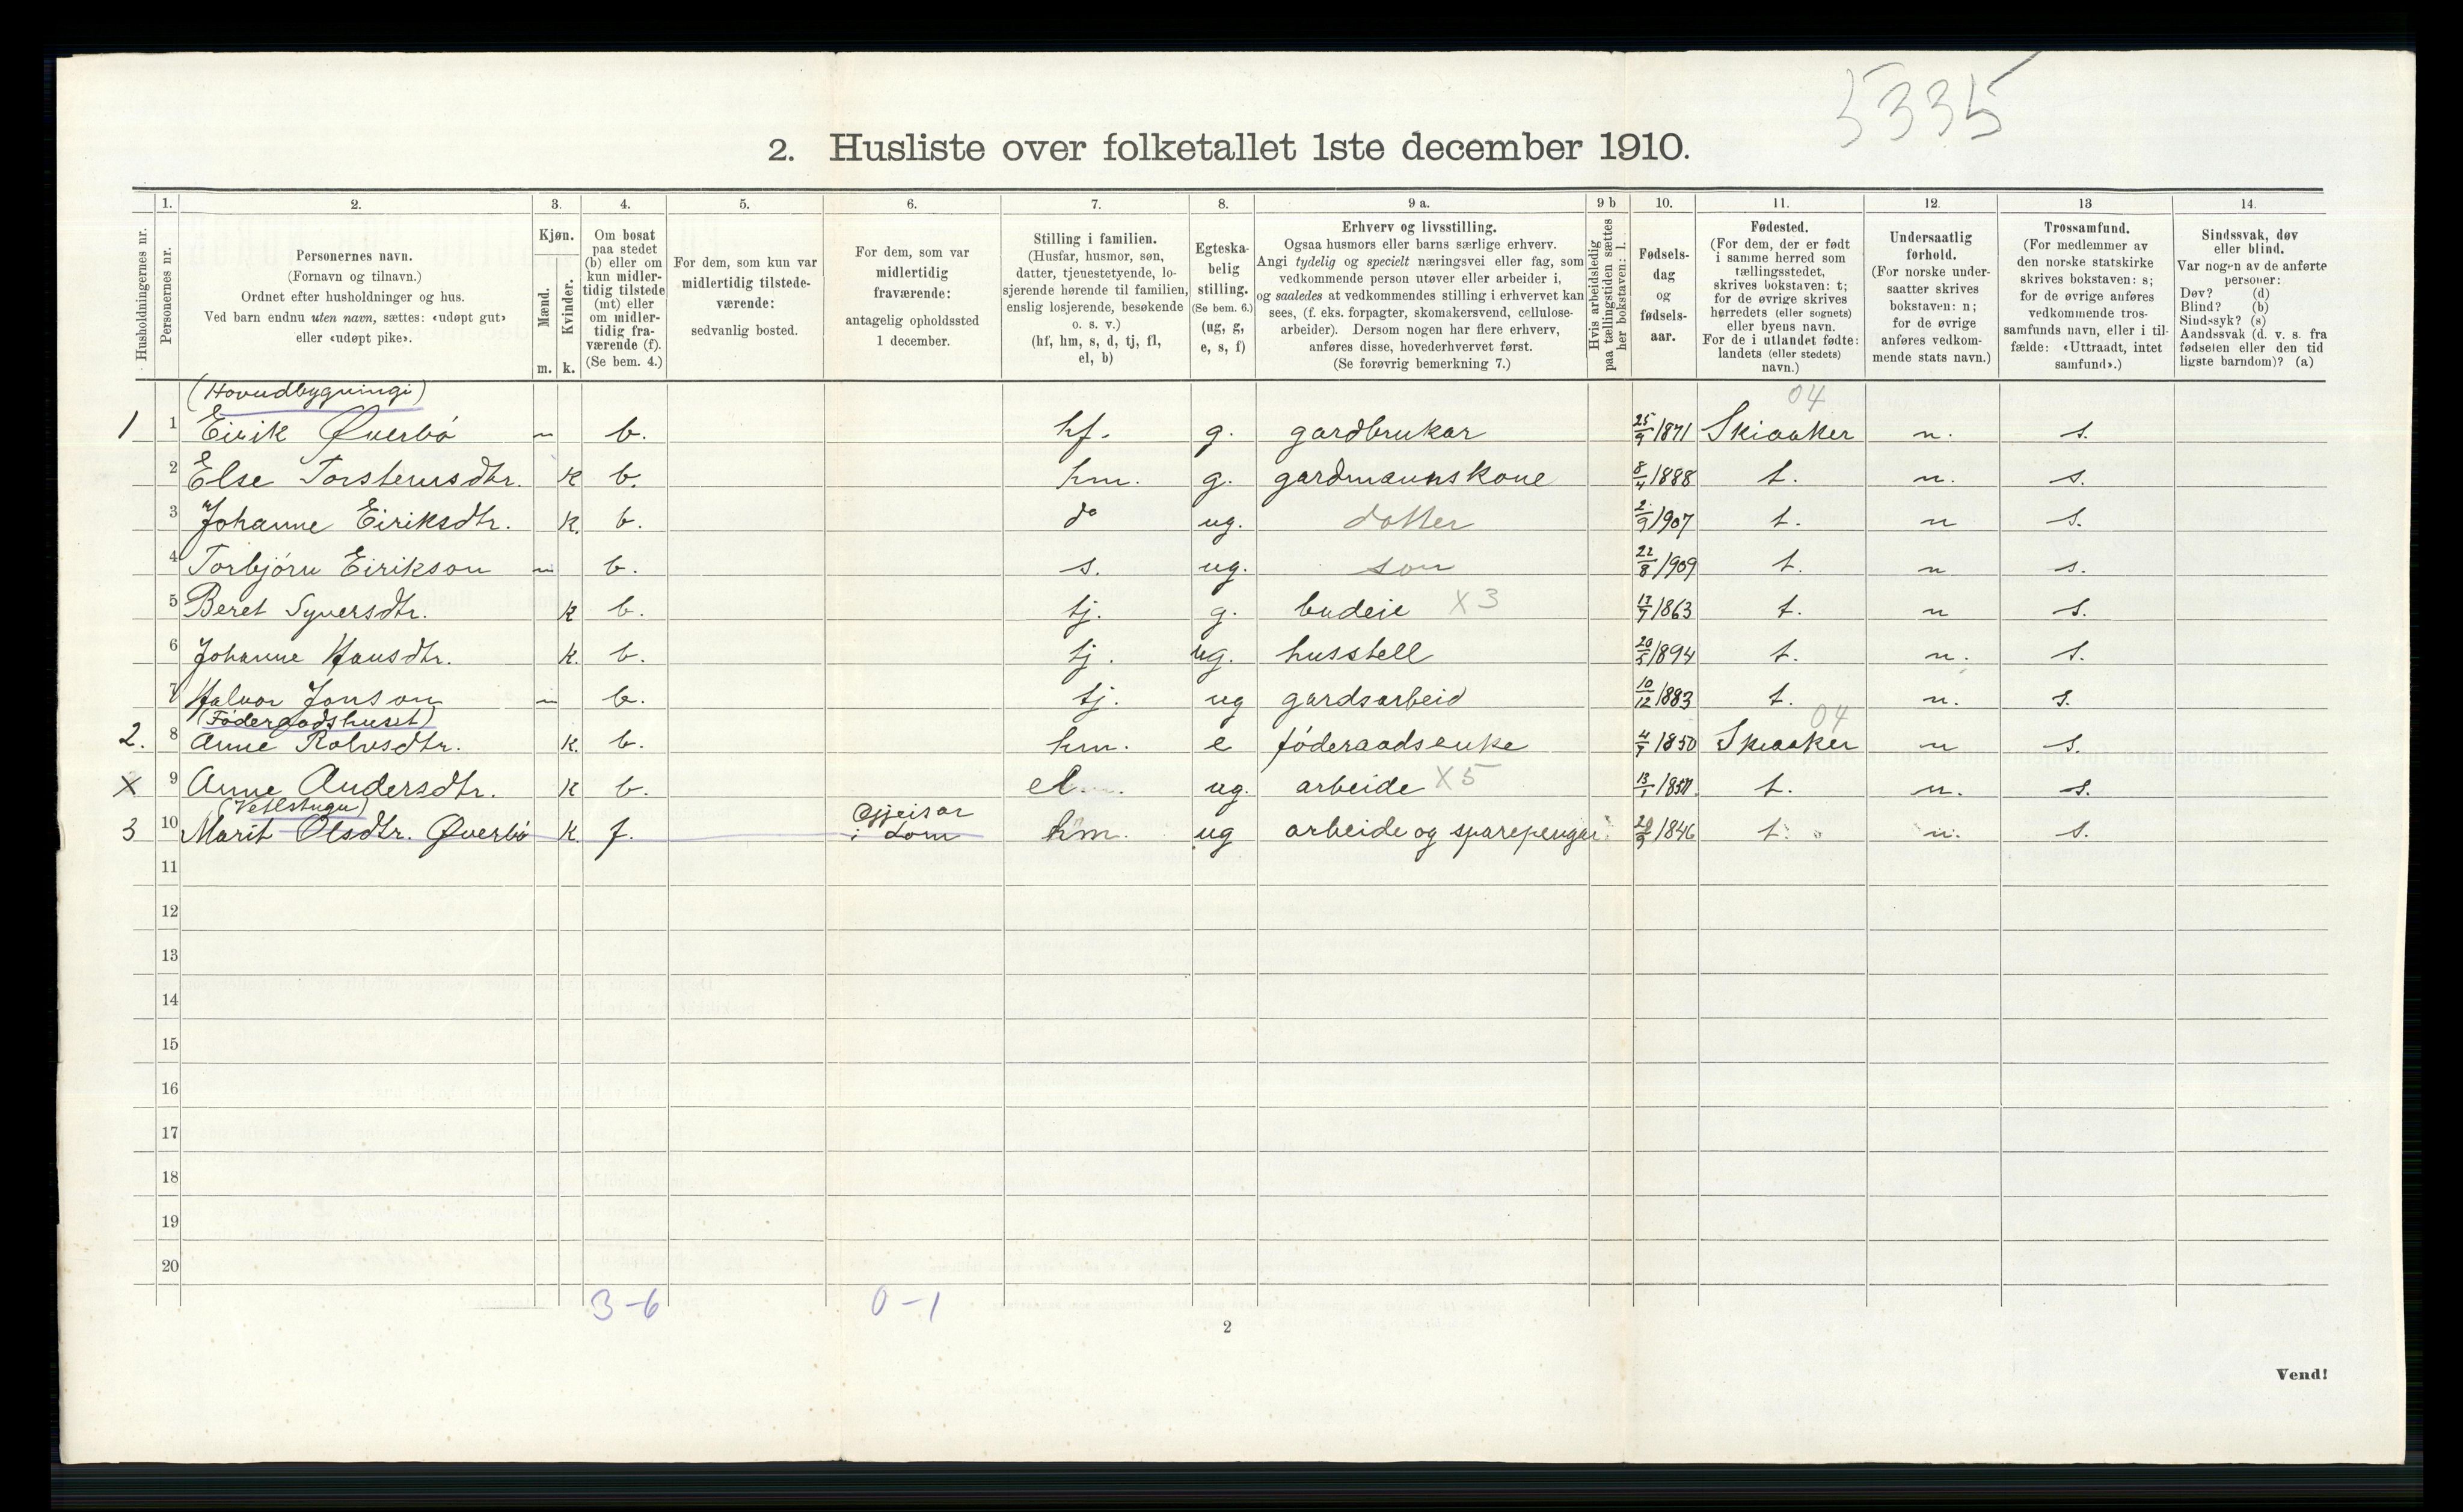 5335
2. Husliste over folketallet 1ste december 1910.
Husholdningernes nr.
1.
Personernes nr.
2.
Personernes navn.
(Fornavn og tilnavn.)
Ordnet efter husholdninger og hus.
Ved barn endnu uten navn, sættes: «udøpt gut»
eller «udøpt pike».
3.
Kjøn.
Mænd.
Kvinder.
m. k.
4.
Om bosat
paa stedet
(b) eller om
kun midler-
tidig tilstede
(mt) eller
om midler-
tidig fra-
værende (f).
(Se bem. 4.)
5.
For dem, som kun var
midlertidig tilstede-
værende:
sedvanlig bosted.
6.
For dem, som var
midlertidig
fraværende:
antagelig opholdssted
1 december.
7.
Stilling i familien.
(Husfar, husmor, søn,
datter, tjenestetyende, lo-
sjerende hørende til familien,
enslig losjerende, besøkende
o. s. v.)
(hf, hm, s, d, tj, fl,
el, b)
8.
Egteska-
belig
stilling.
(Se bem. 6.)
(ug, g,
e, s, f)
9 a.
Erhverv og livsstilling.
Ogsaa husmors eller barns særlige erhverv.
Angi tydelig og specielt næringsvei eller fag, som
vedkommende person utøver eller arbeider i,
og saaledes at vedkommendes stilling i erhvervet kan
sees, (f. eks. forpagter, skomakersvend, cellulose-
arbeider). Dersom nogen har flere erhverv,
anføres disse, hovederhvervet først.
(Se forøvrig bemerkning 7.)
9 b
Hvis arbeidsledig
paa tællingstiden sættes
her bokstaven: l.
10.
Fødsels-
dag
og
fødsels-
aar.
11.
Fødested.
(For dem, der er født
i samme herred som
tællingsstedet,
skrives bokstaven: t;
for de øvrige skrives
herredets (eller sognets)
eller byens navn.
For de i utlandet fødte:
landets (eller stedets)
navn.)
12.
Undersaatlig
forhold.
(For norske under-
saatter skrives
bokstaven: n;
for de øvrige
anføres vedkom-
mende stats navn.)
13
Trossamfund.
(For medlemmer av
den norske statskirke
skrives bokstaven: s;
for de øvrige anføres
vedkommende tros-
samfunds navn, eller i til-
fælde: «Uttraadt, intet
samfund».)
14.
Sindssvak, døv
eller blind.
Var nogen av de anførte
personer:
Døv? (d)
Blind? (b)
Sindssyk? (s)
Aandssvak (d. v. s. fra
fødselen eller den tid
ligste barndom)? (a)
(Hovudbygningi) 04
1 1 Eirik Øverbö m b. hf. g. gardbrukar 25/9 1871 Skiaaker n. s.
2 Else Torsteinsdtr. k b. hm. g. gardmannskone 8/4 1888 t. n. s.
3 Johanne Eiriksdtr. k. b. do ug. dotter 2/9 1907 t. n s.
4 Torbjörn Eirikson m b. s. ug. son 22/8 1909 t. n s.
5 Beret Syversdtr. k b. tj. g. budeie X3 13/7 1863 t. n s.
6 Johanne Hansdtr. k. b. tj. ug. husstell 20/5 1894 t. n. s.
7 Halvor Jonson m b. tj. ug gardsarbeid 10/12 1883 t. n. s.
(Föderaadshuset) 04
2. 8 Anne Rolvsdtr. k. b. hm. e föderaadsenke 4/7 1850 Skiaaker n s.
X 9 Anne Andersdtr. k b. el. ug. arbeide X5 13/1 t. n. s.
(Vetlstugu)
3 10 Marit Olsdtr. Øverbö k f. i Lom hm. ug arbeide og sparepengar 20/9 1846 t. n. s.
11
12
13
14
15
16
17
18
19
20
3-6 0-1
2
Vend!